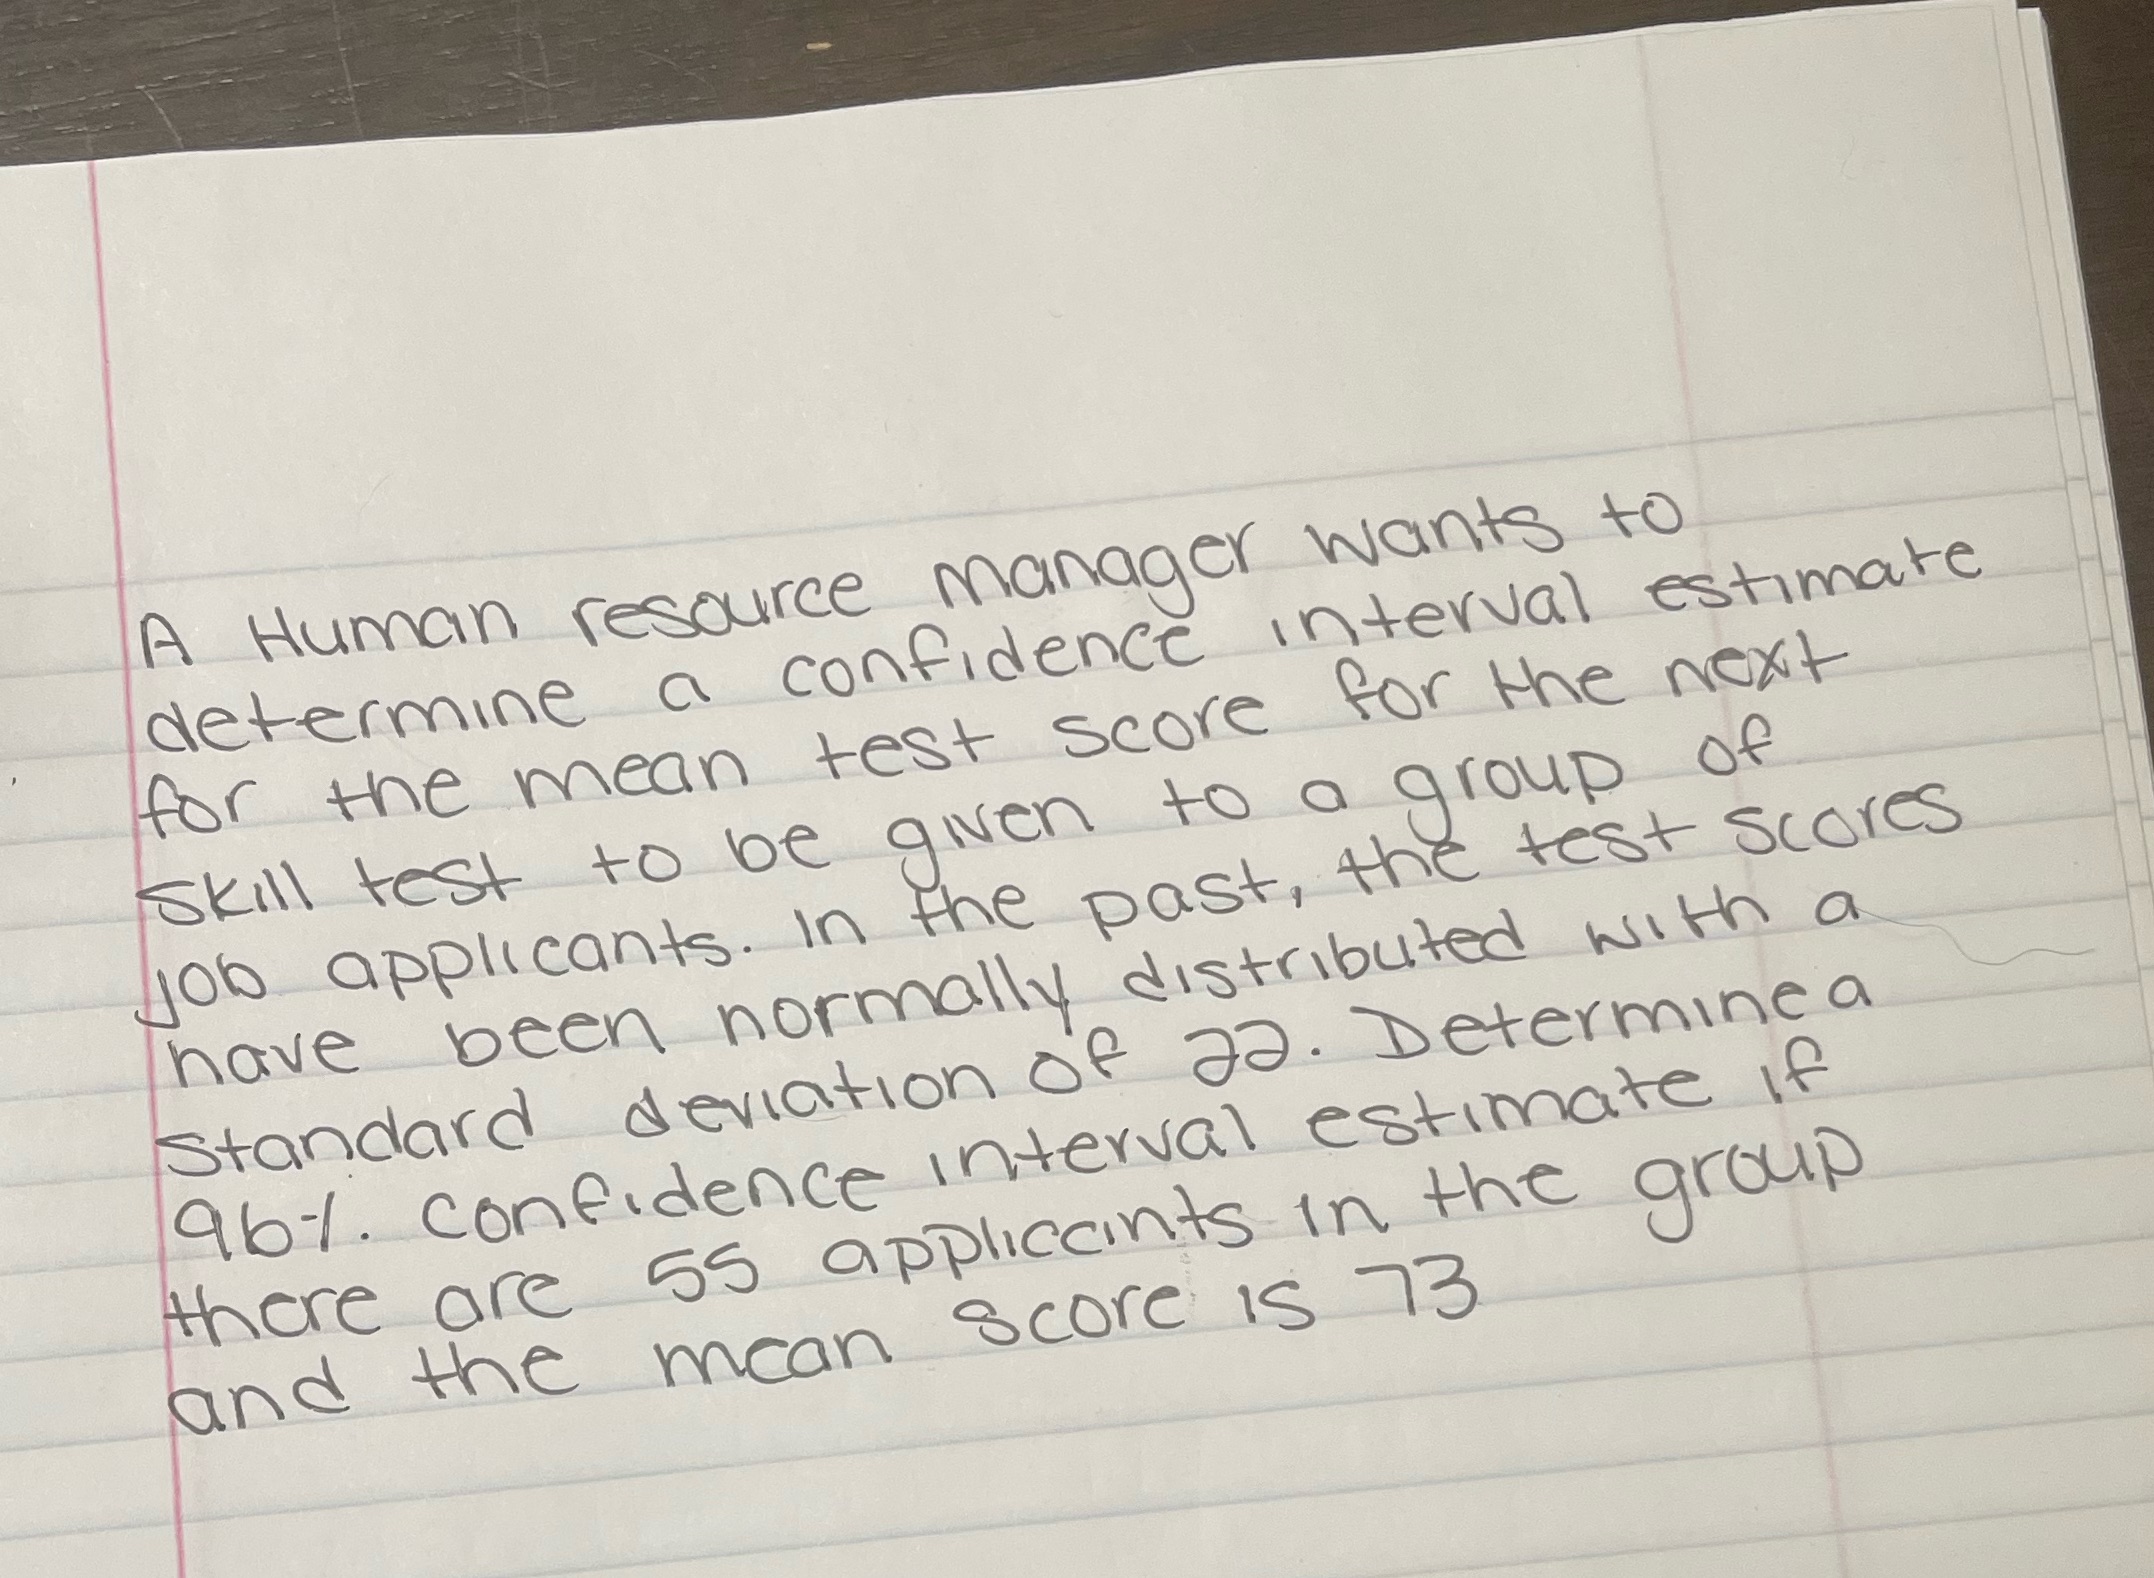 A Human resource manager wants to
determine a confidence interval estimate
for the mean test score for the next
skill test to be given to a group of
job applicants. In the past, the test scores
have been normally distributed with a
standard deviation of 22. Determine a
96%. confidence interval estimate if
there are 55 applicants in the group
and the mean score is 73